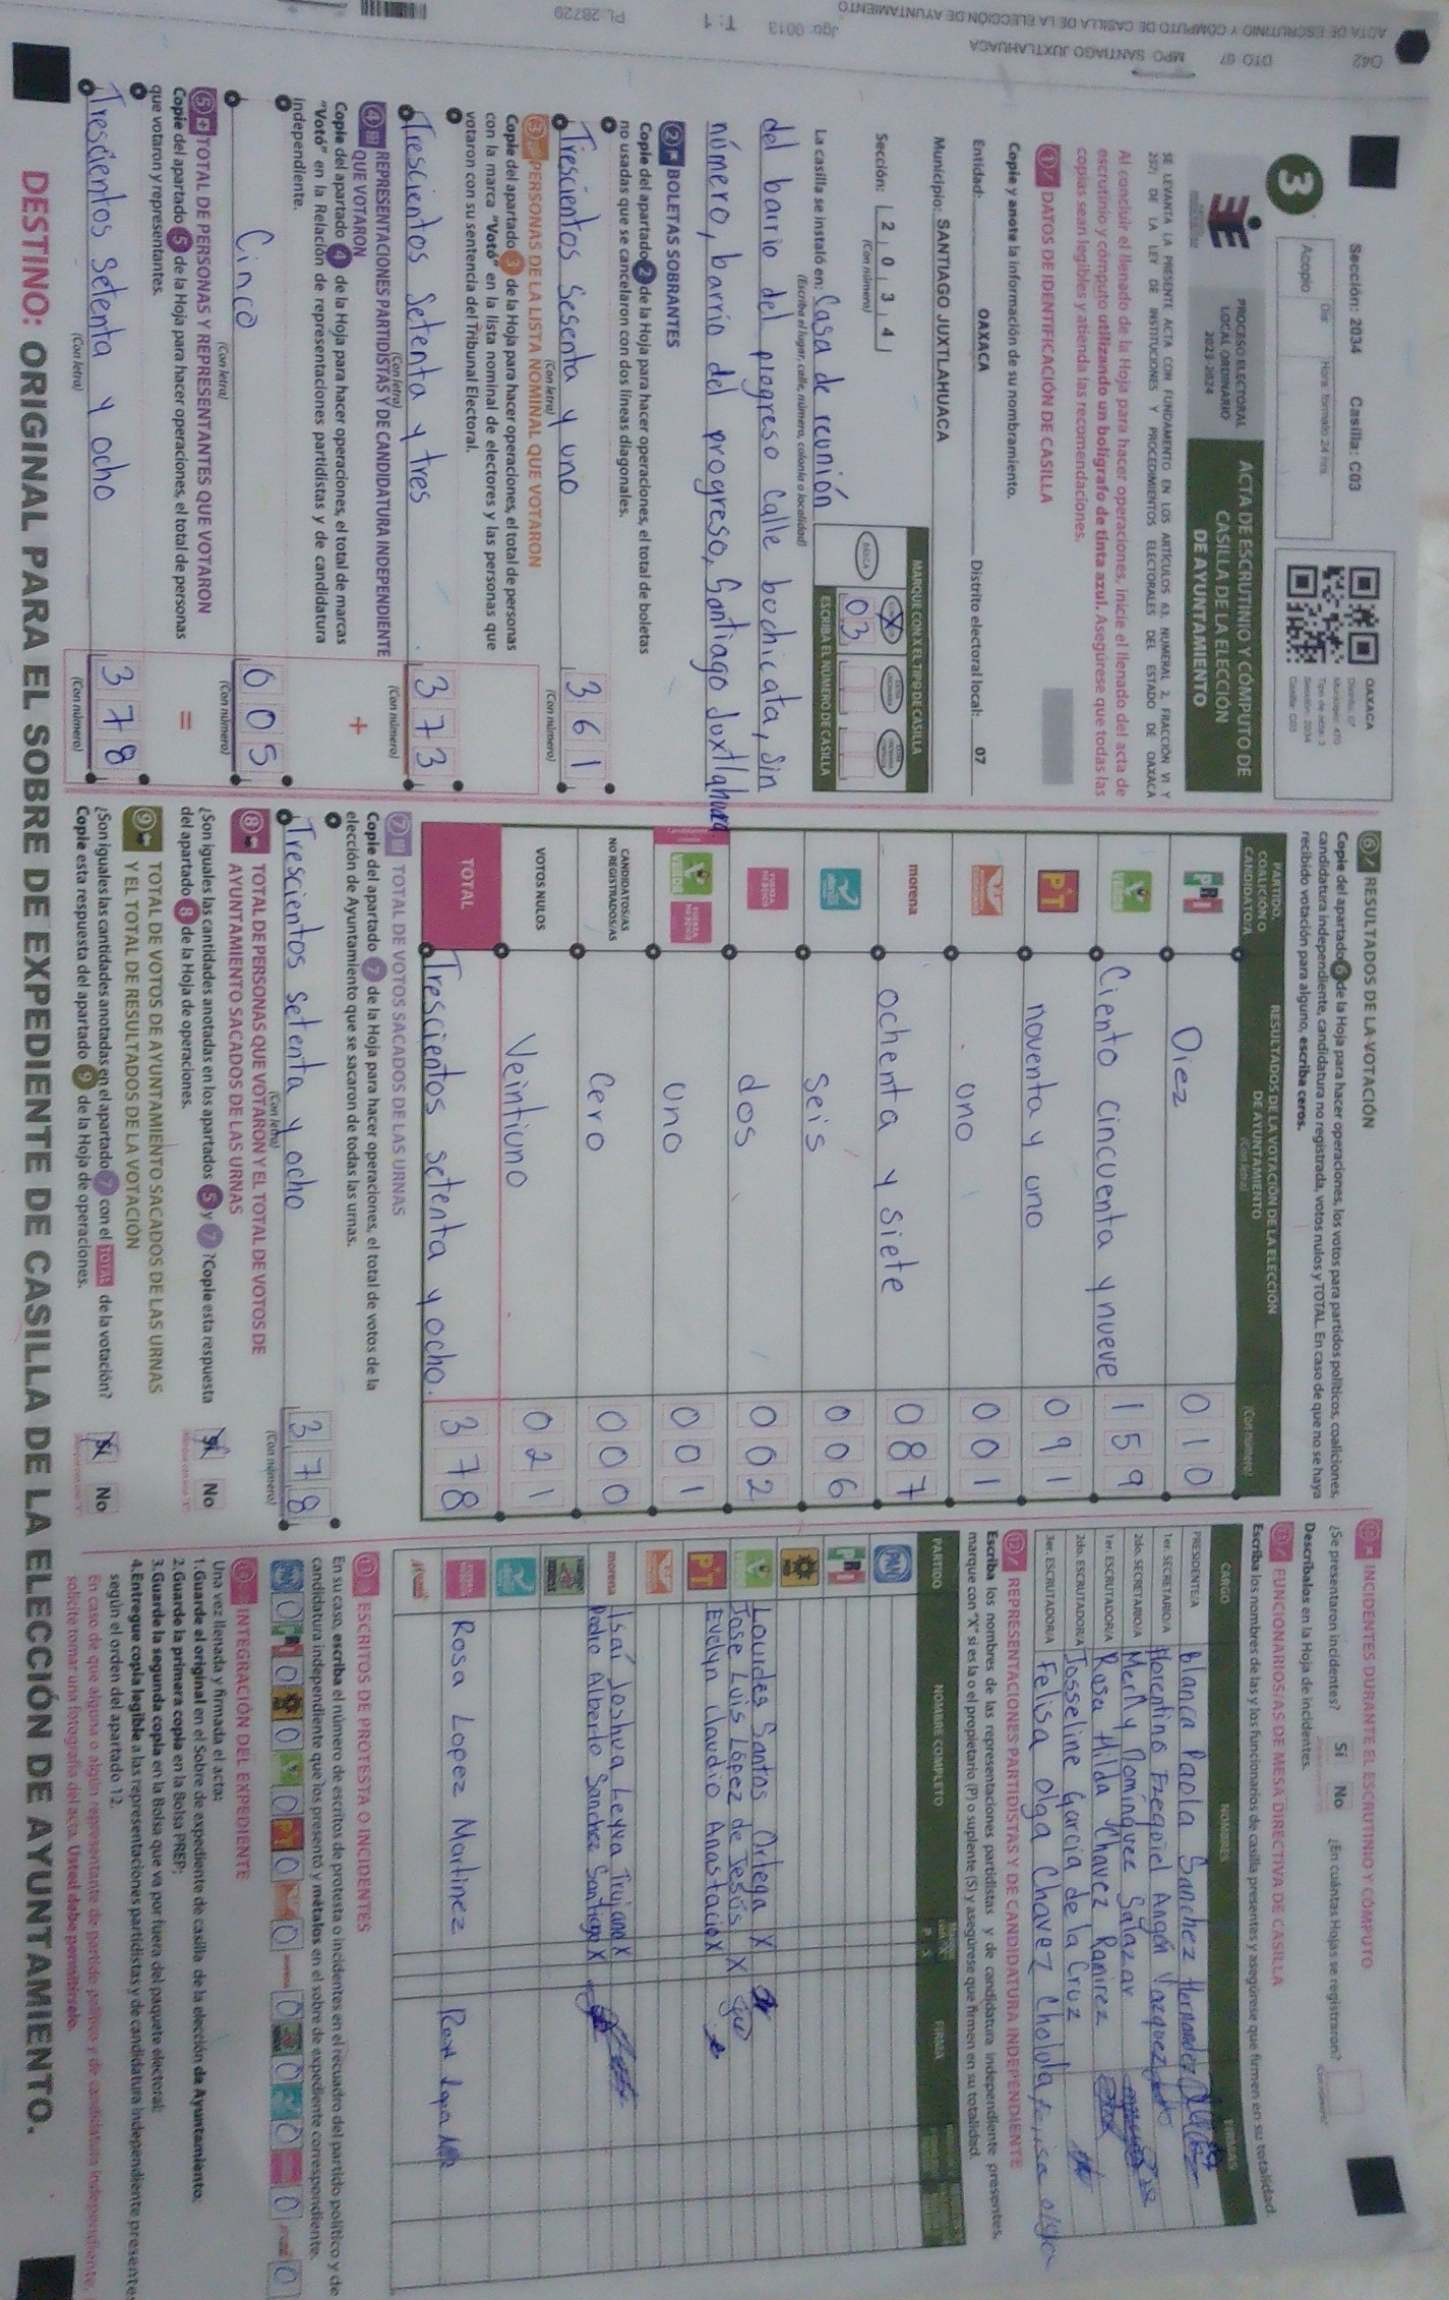 ACTA DE ESCRUTINIO Y CÓMPUTO DE CASILLA DE LA ELECCIÓN DE AYUNTAMIENTO
042 DTO 07 MPO SANTIAGO JUXTLAHUACA
Jgo: 0013 T: 1 PL 28729
3
Sección: 2034 Casilla: C03
Día Hora formato 24 hrs
Acopio
OAXACA
Distrito: 07
Tipo de acta: 3
Sección: 2034
Casilla: C03
PROCESO ELECTORAL
LOCAL ORDINARIO
2023-2024
ACTA DE ESCRUTINIO Y CÓMPUTO DE
CASILLA DE LA ELECCIÓN
DE AYUNTAMIENTO
Al concluir el llenado de la Hoja para hacer operaciones, inicie el llenado del acta de
escrutinio y cómputo utilizando un bolígrafo de tinta azul. Asegúrese que todas las
copias sean legibles y atienda las recomendaciones.
1 DATOS DE IDENTIFICACIÓN DE CASILLA
Copie y anote la información de su nombramiento.
Entidad: OAXACA Distrito electoral local: 07
Municipio: SANTIAGO JUXTLAHUACA
Sección: 2 0 3 4
(Con número)
MARQUE CON X EL TIPO DE CASILLA
BÁSICA X
ESCRIBA EL NÚMERO DE CASILLA
03
La casilla se instaló en: Casa de reunión
(Escriba el lugar, calle, número, colonia o localidad)
del barrio del progreso calle buchicata, sin
número, barrio del progreso, Santiago Juxtlahuaca
2 BOLETAS SOBRANTES
Copie del apartado 2 de la Hoja para hacer operaciones, el total de boletas
no usadas que se cancelaron con dos líneas diagonales.
Trescientos Sesenta y uno 3 6 1
(Con letra) (Con número)
3 PERSONAS DE LA LISTA NOMINAL QUE VOTARON
Copie del apartado 3 de la Hoja para hacer operaciones, el total de personas
con la marca "Votó" en la lista nominal de electores y las personas que
votaron con su sentencia del Tribunal Electoral.
Trescientos Setenta y tres 3 7 3
(Con letra) (Con número)
4 REPRESENTACIONES PARTIDISTAS Y DE CANDIDATURA INDEPENDIENTE
QUE VOTARON
+
Copie del apartado 4 de la Hoja para hacer operaciones, el total de marcas
"Votó" en la Relación de representaciones partidistas y de candidatura
independiente.
Cinco 0 0 5
(Con letra) (Con número)
5 TOTAL DE PERSONAS Y REPRESENTANTES QUE VOTARON
=
Copie del apartado 5 de la Hoja para hacer operaciones, el total de personas
que votaron y representantes.
Trescientos Setenta y ocho 3 7 8
(Con letra) (Con número)
6 RESULTADOS DE LA VOTACIÓN
Copie del apartado 6 de la Hoja para hacer operaciones, los votos para partidos políticos, coaliciones,
candidatura independiente, candidatura no registrada, votos nulos y TOTAL. En caso de que no se haya
recibido votación para alguno, escriba ceros.
PARTIDO, COALICIÓN O CANDIDATO/A
RESULTADOS DE LA VOTACIÓN DE LA ELECCIÓN
DE AYUNTAMIENTO
(Con letra) (Con número)
PRI Diez 0 1 0
VERDE Ciento cincuenta y nueve 1 5 9
PT noventa y uno 0 9 1
uno 0 0 1
morena ochenta y siete 0 8 7
seis 0 0 6
dos 0 0 2
VERDE uno 0 0 1
CANDIDATOS/AS
NO REGISTRADOS/AS cero 0 0 0
VOTOS NULOS Veintiuno 0 2 1
TOTAL Trescientos setenta y ocho. 3 7 8
7 TOTAL DE VOTOS SACADOS DE LAS URNAS
Copie del apartado 7 de la Hoja para hacer operaciones, el total de votos de la
elección de Ayuntamiento que se sacaron de todas las urnas.
Trescientos setenta y ocho 3 7 8
(Con letra) (Con número)
8 TOTAL DE PERSONAS QUE VOTARON Y EL TOTAL DE VOTOS DE
AYUNTAMIENTO SACADOS DE LAS URNAS
¿Son iguales las cantidades anotadas en los apartados 5 y 7 ? Copie esta respuesta
del apartado 8 de la Hoja de operaciones.
Sí No
9 TOTAL DE VOTOS DE AYUNTAMIENTO SACADOS DE LAS URNAS
Y EL TOTAL DE RESULTADOS DE LA VOTACIÓN
¿Son iguales las cantidades anotadas en el apartado 7 con el TOTAL de la votación?
Copie esta respuesta del apartado 9 de la Hoja de operaciones.
Sí No
10 INCIDENTES DURANTE EL ESCRUTINIO Y CÓMPUTO
¿Se presentaron incidentes? Sí No ¿En cuántas Hojas se registraron?
Descríbalas en la Hoja de incidentes.
11 FUNCIONARIOS/AS DE MESA DIRECTIVA DE CASILLA
Escriba los nombres de las y los funcionarios de casilla presentes y asegúrese que firmen en su totalidad.
CARGO NOMBRES FIRMAS
PRESIDENTE/A Blanca Paola Sanchez Hernandez
1er. SECRETARIO/A Florentino Ezequiel Angón Vazquez
2do. SECRETARIO/A Merly Dominguez Salazar
1er. ESCRUTADOR/A Rosa Hilda Chavez Ramirez
2do. ESCRUTADOR/A Josseline Garcia de la Cruz
3er. ESCRUTADOR/A Felisa olga Chavez Cholula
12 REPRESENTACIONES PARTIDISTAS Y DE CANDIDATURA INDEPENDIENTE
Escriba los nombres de las representaciones partidistas y de candidatura independiente presentes,
marque con "X" si es la o el propietario (P) o suplente (S) y asegúrese que firmen en su totalidad.
PARTIDO NOMBRE COMPLETO FIRMA
PAN
PRI
VERDE Lourdes Santos Ortega X
Jose Luis López de Jesús X
PT Evelyn Claudio Anastacio X
morena Isaí Joshua Leyva Trujano X
Pedro Alberto Sanchez Santiago X
Rosa Lopez Martinez
13 ESCRITOS DE PROTESTA O INCIDENTES
En su caso, escriba el número de escritos de protesta o incidentes en el recuadro del partido político y de
candidatura independiente que los presentó y métalos en el sobre de expediente correspondiente.
PAN 0 PRI 0 0 0 PT 0 0 0 0 0 0 0
14 INTEGRACIÓN DEL EXPEDIENTE
Una vez llenada y firmada el acta:
1.Guarde el original en el Sobre de expediente de casilla de la elección de Ayuntamiento;
2.Guarde la primera copia en la Bolsa PREP;
3.Guarde la segunda copia en la Bolsa que va por fuera del paquete electoral;
4.Entregue copia legible a las representaciones partidistas y de candidatura independiente presentes
según el orden del apartado 12.
En caso de que alguna o algún representante de partido político y de candidatura independiente,
solicite tomar una fotografía del acta. Usted debe permitírselo.
DESTINO: ORIGINAL PARA EL SOBRE DE EXPEDIENTE DE CASILLA DE LA ELECCIÓN DE AYUNTAMIENTO.